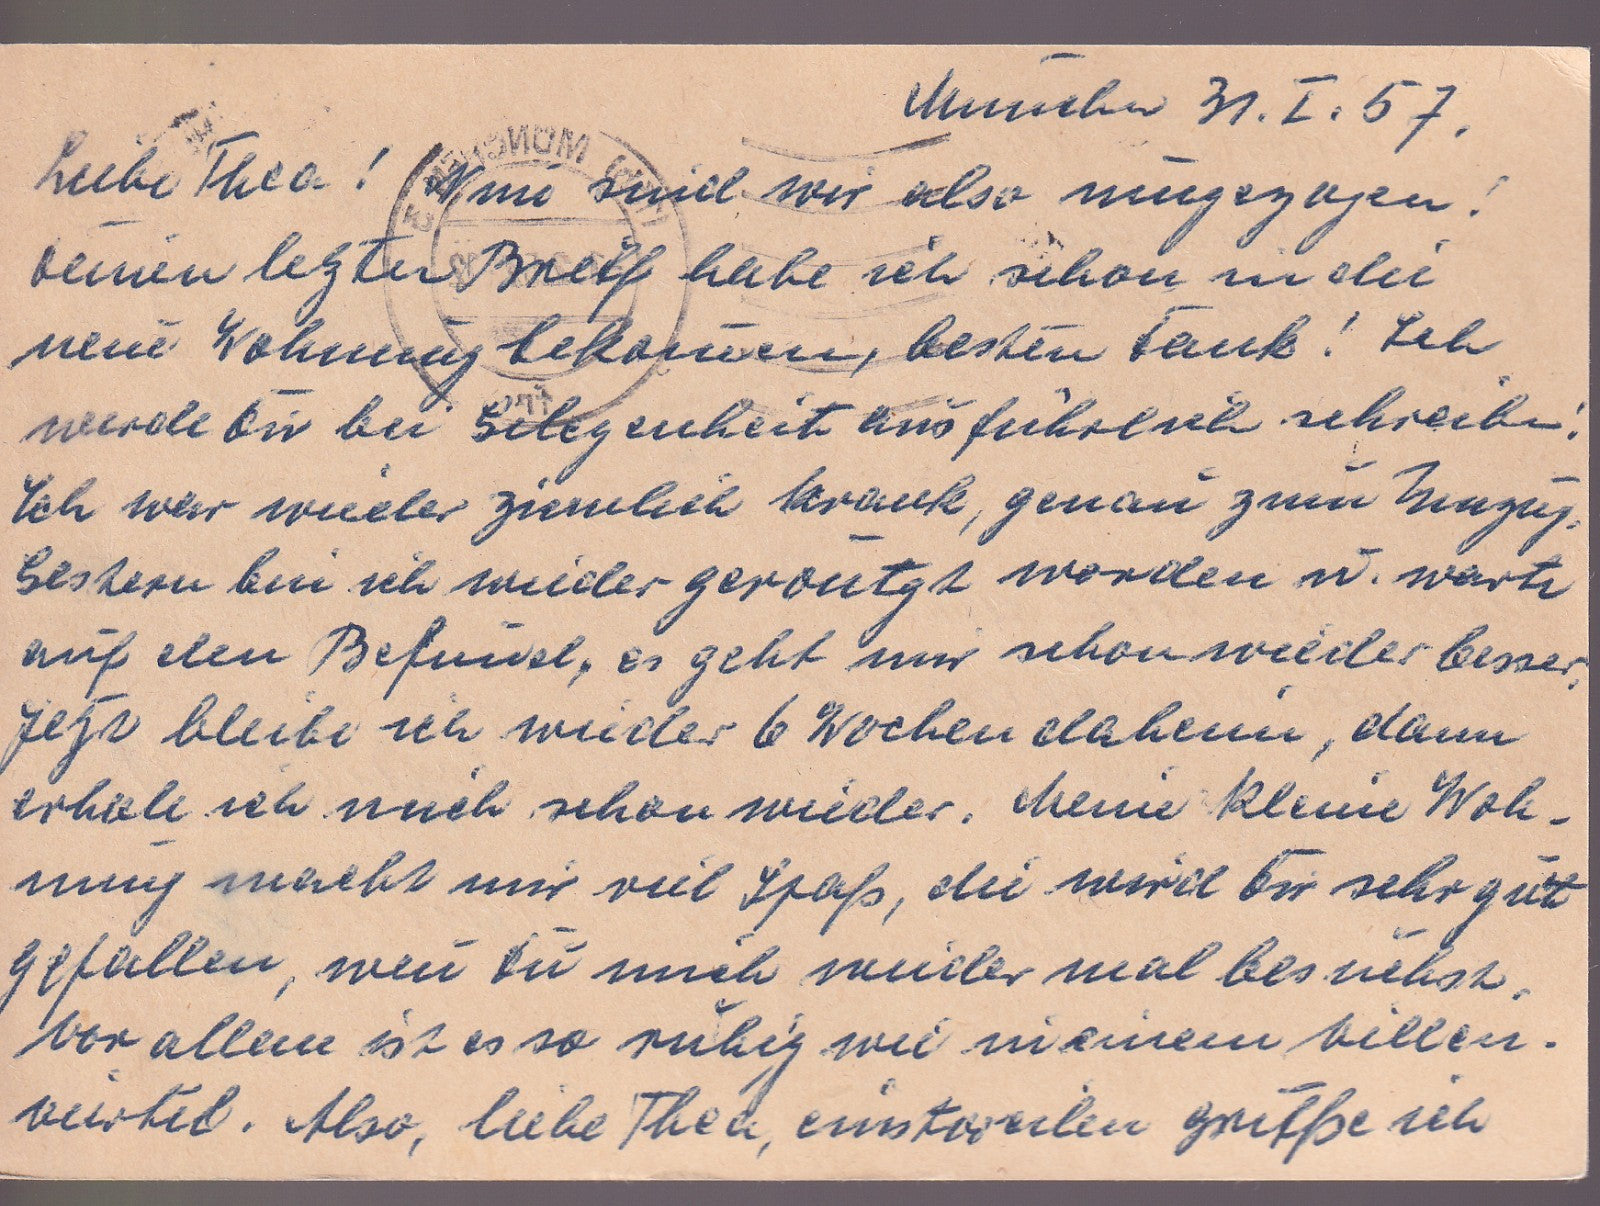 München 31. I. 57.
Liebe Thea! Nun sind wir also umgezogen!
Deinen letzten Brief habe ich schon in die
neue Wohnung bekom̅en, besten Dank! Ich
werde Dir bei Gelegenheit ausführlich schreiben!
Ich war wieder ziemlich krank, genau zum Umzug.
Gestern bin ich wieder geröntgt worden u. warte
auf den Befund, es geht mir schon wieder besser.
Jetzt bleibe ich wieder 6 Wochen daheim, dann
erhole ich mich schon wieder. Meine kleine Woh-
nung macht mir viel Spaß, die wird Dir sehr gut
gefallen, wen̅ Du mich wieder mal besuchst.
Vor allem ist es so ruhig wie in einem Villen-
viertel. Also, liebe Thea, einstweilen grüße ich